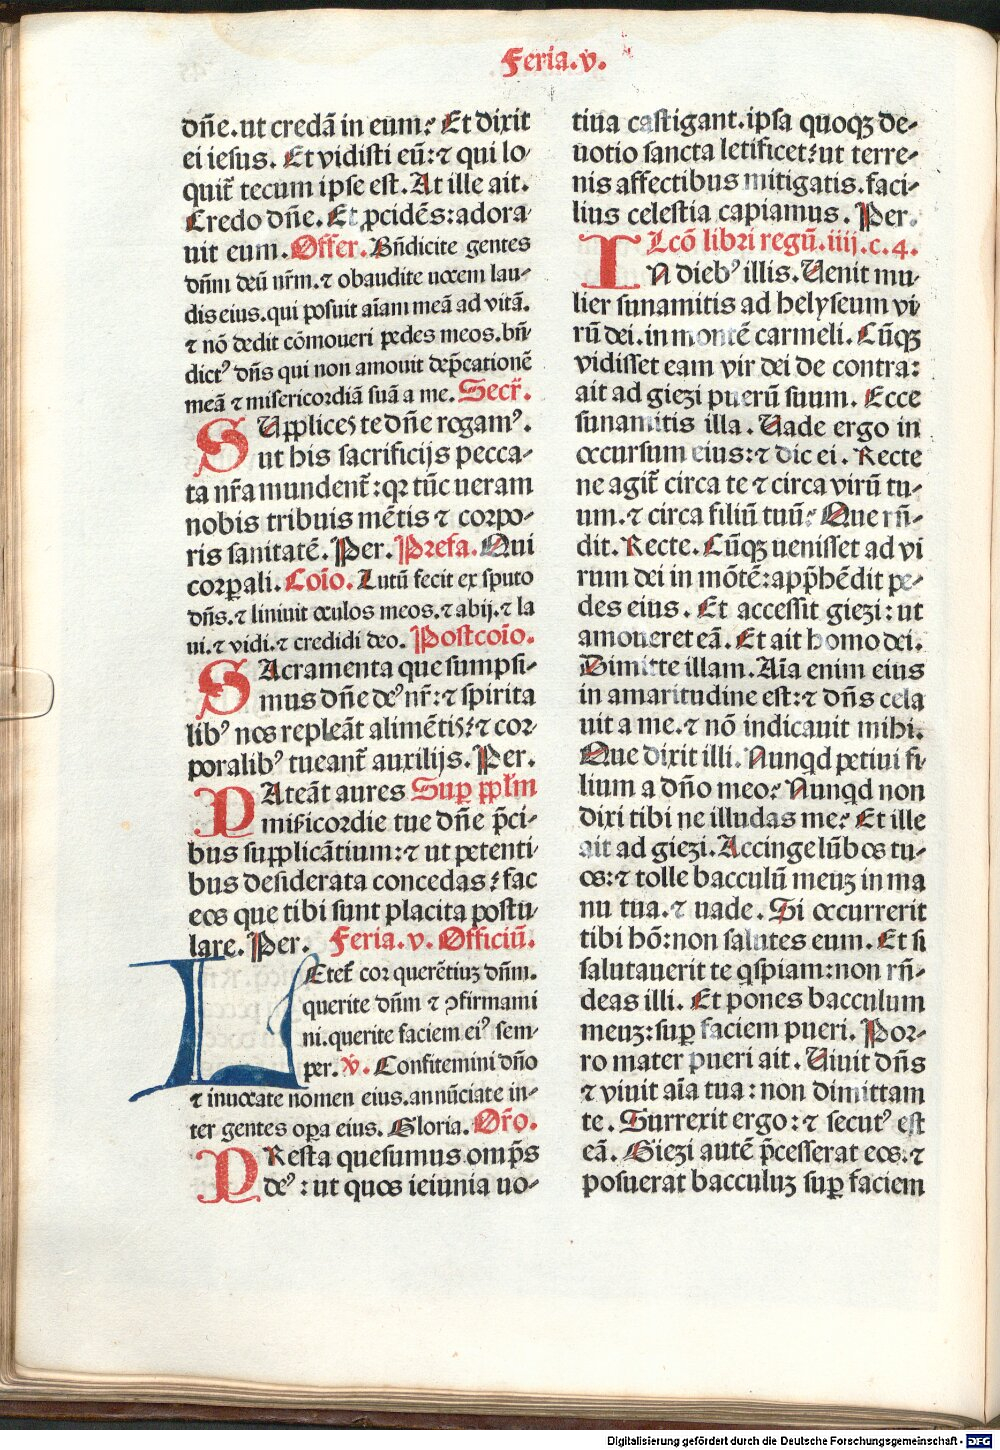 Feria.v̇.
dñe.ut credã in eum? Et dixit
ei iesus. Et vidisti eũ:⁊ qui lo-
quit̃ tecum ipse est. At ille ait.
Credo dñe. Et ꝓcidẽs:adora-
uit eum. Offer̃. Bñdicite gentes
dñm deũ nr̃m.⁊ obaudite uocem lau-
dis eius.qui posuit aĩam meã ad vitã.
⁊ nõ dedit cõmoueri pedes meos.bñ-
dictꝰ dñs qui non amouit dep̃cationẽ
meã ⁊ misericordiã suã a me. Secr̃.
SUpplices te dñe rogamꝰ.
ut his sacrificijs pecca-
ta nr̃a mundent̃:qꝛ tũc ueram
nobis tribuis mẽtis ⁊ corpo-
ris sanitatẽ. Per. Prefa. Qui
corꝑali. Coĩo. Lutũ fecit ex sputo
dñs.⁊ liniuit oculos meos.⁊ abij.⁊ la
ui.⁊ vidi.⁊ credidi deo. Postcoĩo.
SAcramenta que sumpsi-
mus dñe deꝰ nr̃:⁊ spirita
libꝰ nos repleãt alimẽtis:⁊ cor-
poralibꝰ tueant̃ auxilijs. Per.
PAteãt aures Suꝑ ppl̃m
mis̃icordie tue dñe p̃ci-
bus supplicãtium:⁊ ut petenti-
bus desiderata concedas:fac
eos que tibi sunt placita postu-
lare. Per. Feria.v. Officiũ.
LEtet̃ cor querẽtiuꝫ dñm.
querite dñm ⁊ ↄfirmami
ni.querite faciem eiꝰ sem-
per. v̇. Confitemini dño
⁊ inuocate nomen eius.annũciate in-
ter gentes oꝑa eius. Gloria. Or̃o.
PResta quesumus omp̃s
deꝰ: ut quos ieiunia uo-
tiua castigant.ipsa quoqꝫ de-
uotio sancta letificet:ut terre-
nis affectibus mitigatis.faci-
lius celestia capiamus. Per.
Lcõ libri regũ.iiij.c.4.
IN diebꝰ illis. Uenit mu-
lier sunamitis ad helyseum vi-
rũ dei.in montẽ carmeli. Cũqꝫ
vidisset eam vir dei de contra:
ait ad giezi puerũ suum. Ecce
sunamitis illa. Uade ergo in
occursum eius:⁊ dic ei. Recte
ne agit̃ circa te ⁊ circa virũ tu-
um.⁊ circa filiũ tuũ? Que rñ-
dit. Recte. Cũqꝫ uenisset ad vi
rum dei in mõtẽ:app̃hẽdit pe-
des eius. Et accessit giezi: ut
amoueret eã. Et ait homo dei.
Dimitte illam. Aĩa enim eius
in amaritudine est:⁊ dñs cela
uit a me.⁊ nõ indicauit mihi.
Que dixit illi. Nunqd petiui fi-
lium a dño meo? Nunqd non
dixi tibi ne illudas me? Et ille
ait ad giezi. Accinge lũbos tu-
os:⁊ tolle bacculũ meuꝫ in ma
nu tua.⁊ uade. Si occurrerit
tibi hõ:non salutes eum. Et si
salutauerit te qspiam:non rñ-
deas illi. Et pones bacculum
meuꝫ:suꝑ faciem pueri. Por-
ro mater pueri ait. Uiuit dñs
⁊ viuit aĩa tua: non dimittam
te. Surrexit ergo:⁊ secutꝰ est
eã. Giezi autẽ p̃cesserat eos.⁊
posuerat bacculuꝫ suꝑ faciem
Digitalisierung gefördert durch die Deutsche Forschungsgemeinschaft - DFG